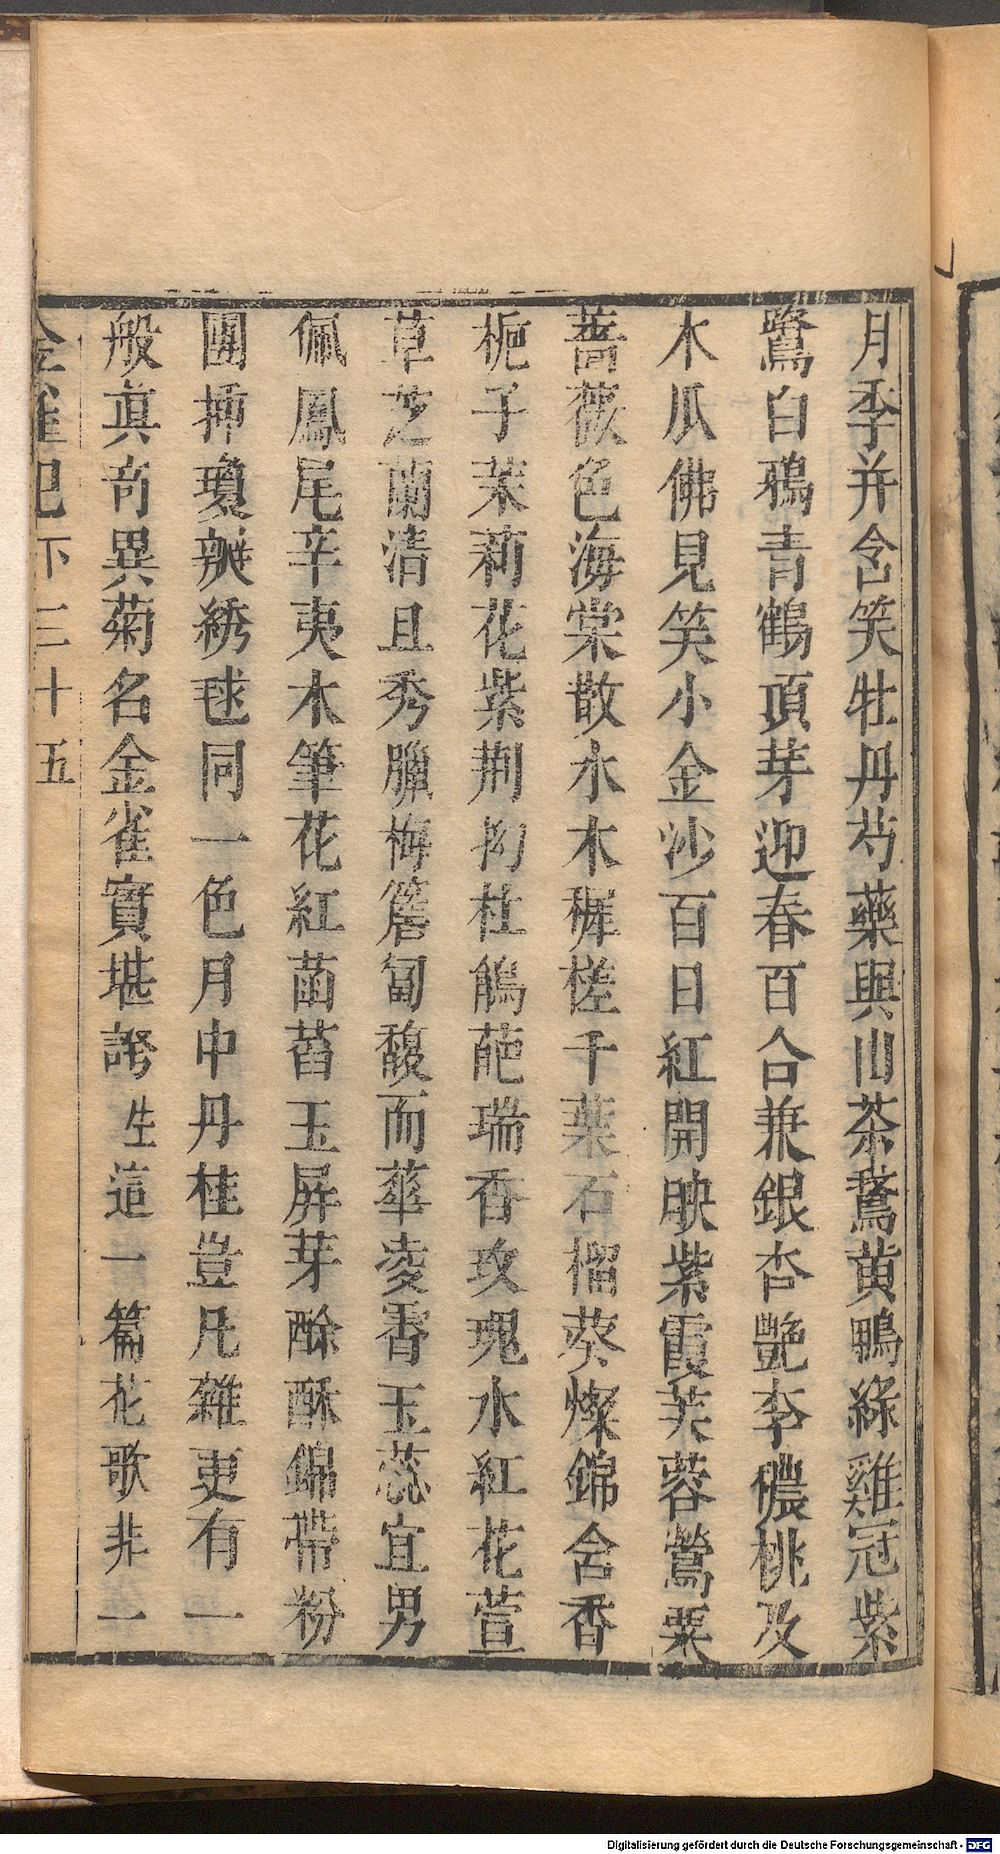 月季并含笑牡丹芍藥與山茶鵞黄鴨綠雞冠紫
鷺白鴉青鶴頂芽迎春百合兼銀杏艷李穠桃及
木瓜佛見笑小金沙百日紅開映紫霞芙蓉鶯粟
薔薇色海棠散水木樨槎千葉石榴葵燦錦含香
梔子茉莉花紫荆枸杜鵑葩瑞香玫瑰水紅花萱
草芝蘭清且秀臘梅簷匐馥而華麥香玉蕊宜男
佩鳳尾辛夷木筆花紅菡萏玉屏芽酴酥錦帶粉
團揷瓊瓣綉毬同一色月中丹桂豈凡雜更有一
般眞奇異菊名金雀實堪誇生這一篇花歌非一
金雀記下三十五
Digitalisierung gefördert durch die Deutsche Forschungsgemeinschaft - DFG